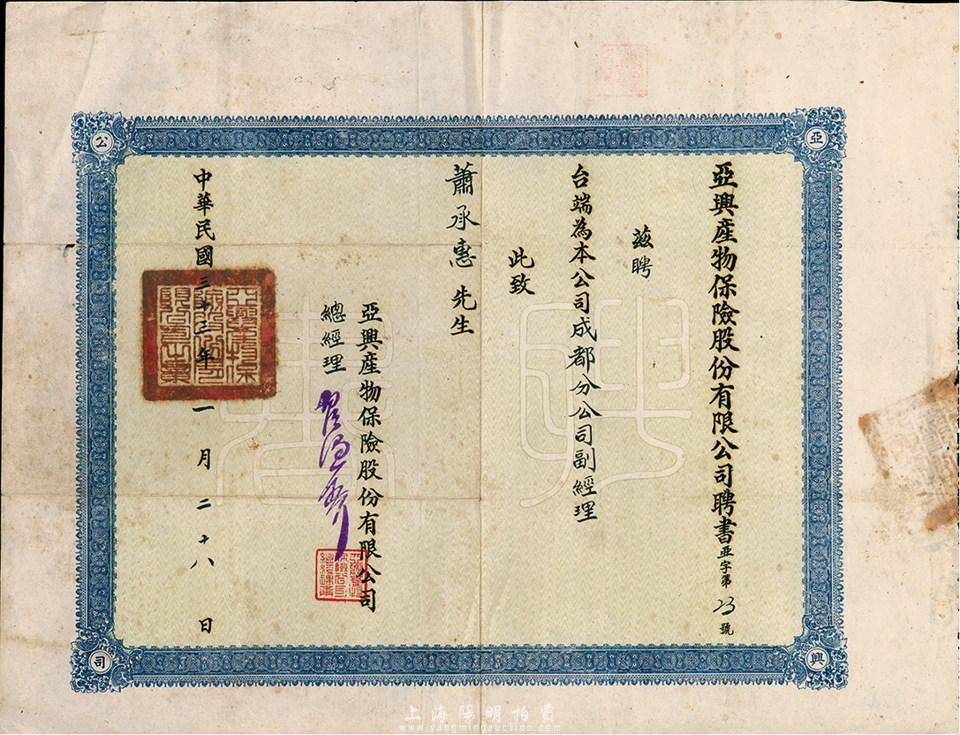 亞興產物保險股份有限公司聘書亚字第23號
茲聘
台端為本公司成都分公司副經理
此致
蕭承惠先生
亞興產物保險股份有限公司
總經理
中華民國三十三年一月二十八日
亞
興
公
司
上海陽明拍賣
www.yangmingauction.com